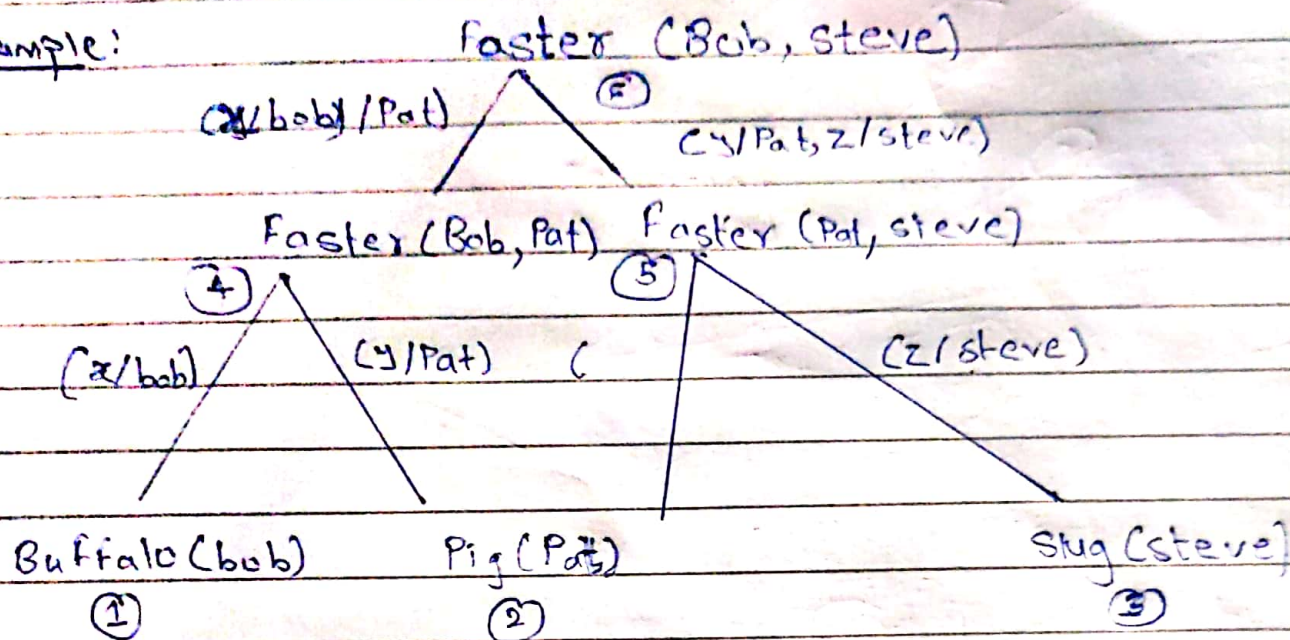 ample: Faster (Bob, Steve)
(x/bob y/Pat) (y/Pat, z/steve)
Faster (Bob, Pat) Faster (Pat, Steve)
4 5
(x/bob) (y/Pat) ( (z/steve)
Buffalo (bob) Pig (Pat) Slug (steve)
1 2 3